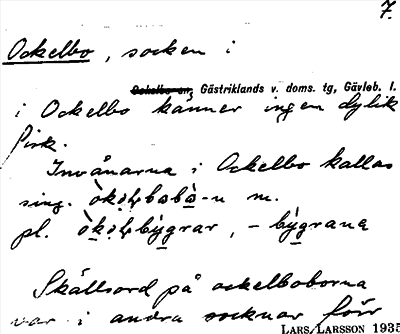 7.
Ockelbo, socken i
Ockelbo sn, Gästriklands v. doms. tg, Gävleb. l.
i Ockelbo känner ingen dylik
fisk.
Invånarna i Ockelbo kallas
sing. m.
pl.
Skällsord på ockelboborna
var i andra socknar förr
LARS LARSSON 1935